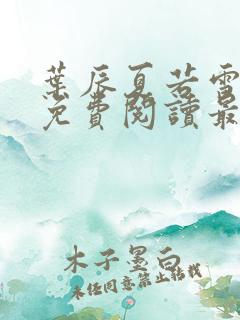 葉辰夏若雪
免費閱讀最
木子墨白
未经同意禁止转载